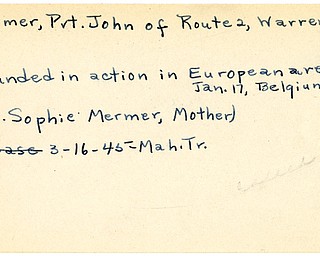 mer, Pvt. John of Route 2, Warre
unded in action in European are
Jan. 17, Belgium
. Sophie Mermer, Mother)
ease 3-16-45-Mah. Tr.